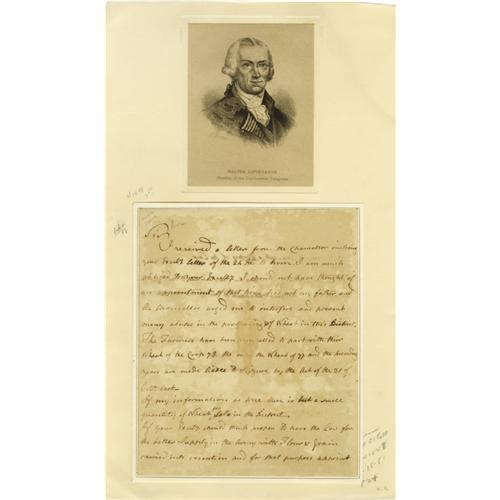 WALTER LIVINGSTON
Member of the Continental Congress
Sir
I received a letter from the Chancellor inclosing
your Excel's letter of the 24th to him. I am much
obliged to your Excel'y I should not have thought of
an appointment of that had not my father and
the Chancellor urged me to interfere and prevent
many abuses in the procuring of Wheat in this District.
The Farmers have been to part with their
Wheat of the Crop 78. the Wheat of 77 and the preceeding
years are made liable to Seizure by the Act of the 31 of
last.
If my informations is true there is but a small
quantity of Wheat in the District.
If your Excel'y should think proper to have the Law for
the better Supply in the Army with Flour & Grain
carried into execution and for that purpose appoint